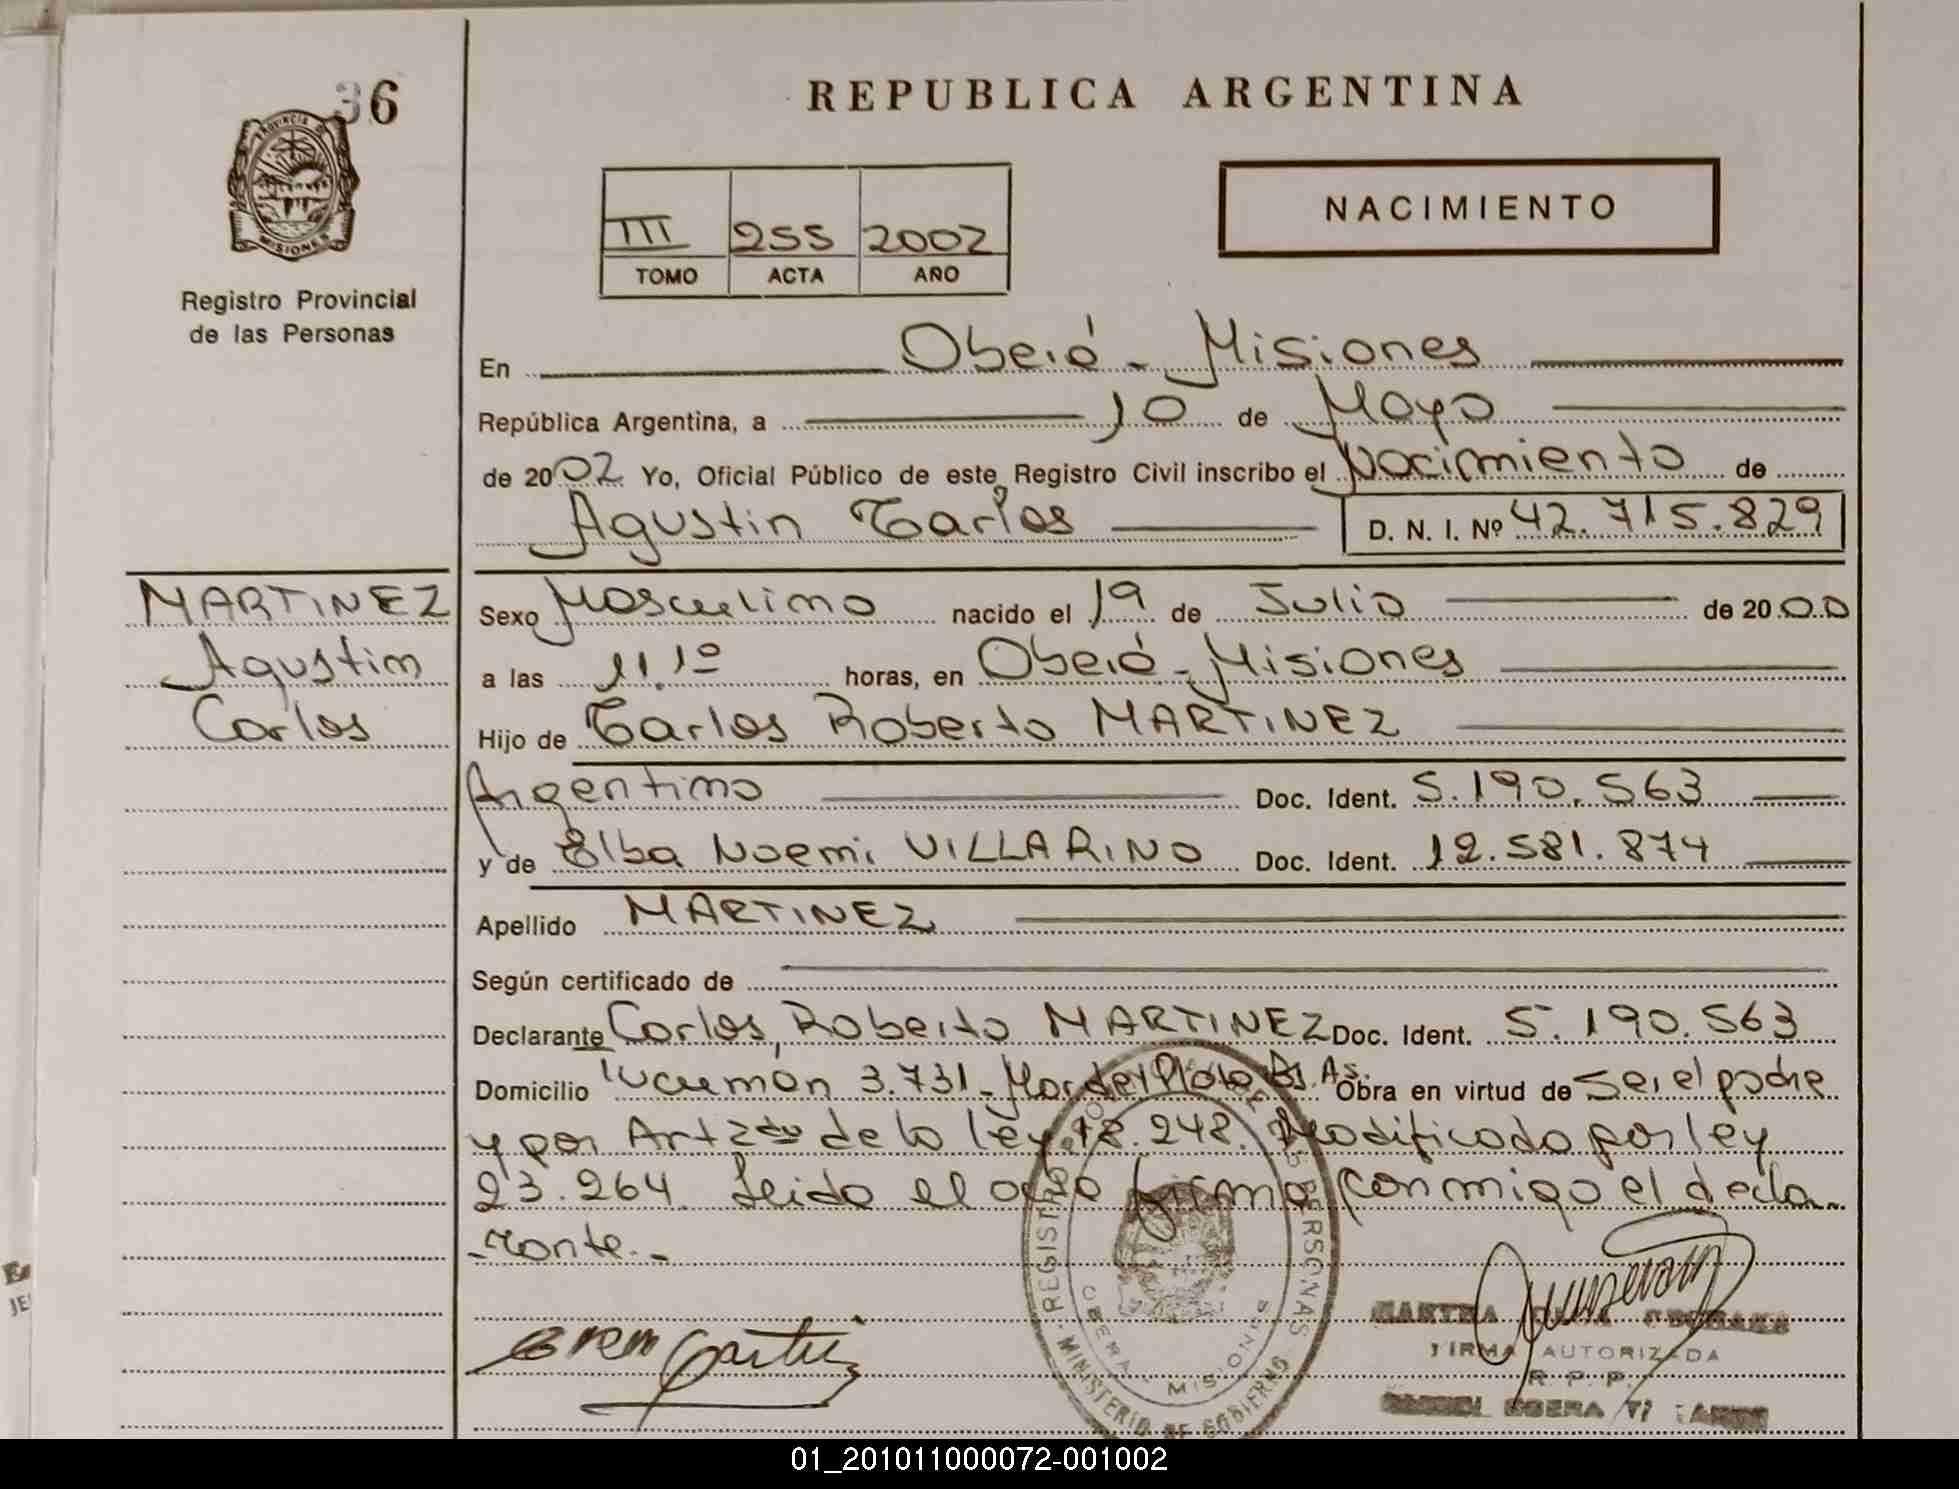 36
REPUBLICA ARGENTINA
PROVINCIA DE
MISIONES
Registro Provincial
de las Personas
III 255 2002
TOMO ACTA AÑO
NACIMIENTO
En Oberá - Misiones
República Argentina, a 10 de Mayo
de 2002 Yo, Oficial Público de este Registro Civil inscribo el Nacimiento de
Agustin Carlos D. N. I. Nº 42.715.829
MARTINEZ
Agustin
Carlos
Sexo Masculino nacido el 19 de Julio de 2000
a las 11.1º horas, en Oberá - Misiones
Hijo de Carlos Roberto MARTINEZ
Argentino Doc. Ident. 5.190.563
y de Elba Noemi VILLARINO Doc. Ident. 12.581.874
Apellido MARTINEZ
Según certificado de
Declarante Carlos Roberto MARTINEZ Doc. Ident. 5.190.563
Domicilio Tucumán 3.731 - Mar del Plata Bs. As. Obra en virtud de Ser el padre
y por Art 2do de la ley 18.248. Modificado por ley
23.264. Leida el acta firma conmigo el decla-
-rante.-
REGISTRO PERSONAS
OBERA - MISIONES
MINISTERIO DE GOBIERNO
FIRMA AUTORIZADA
R. P. P.
OBERA
01_201011000072-001002